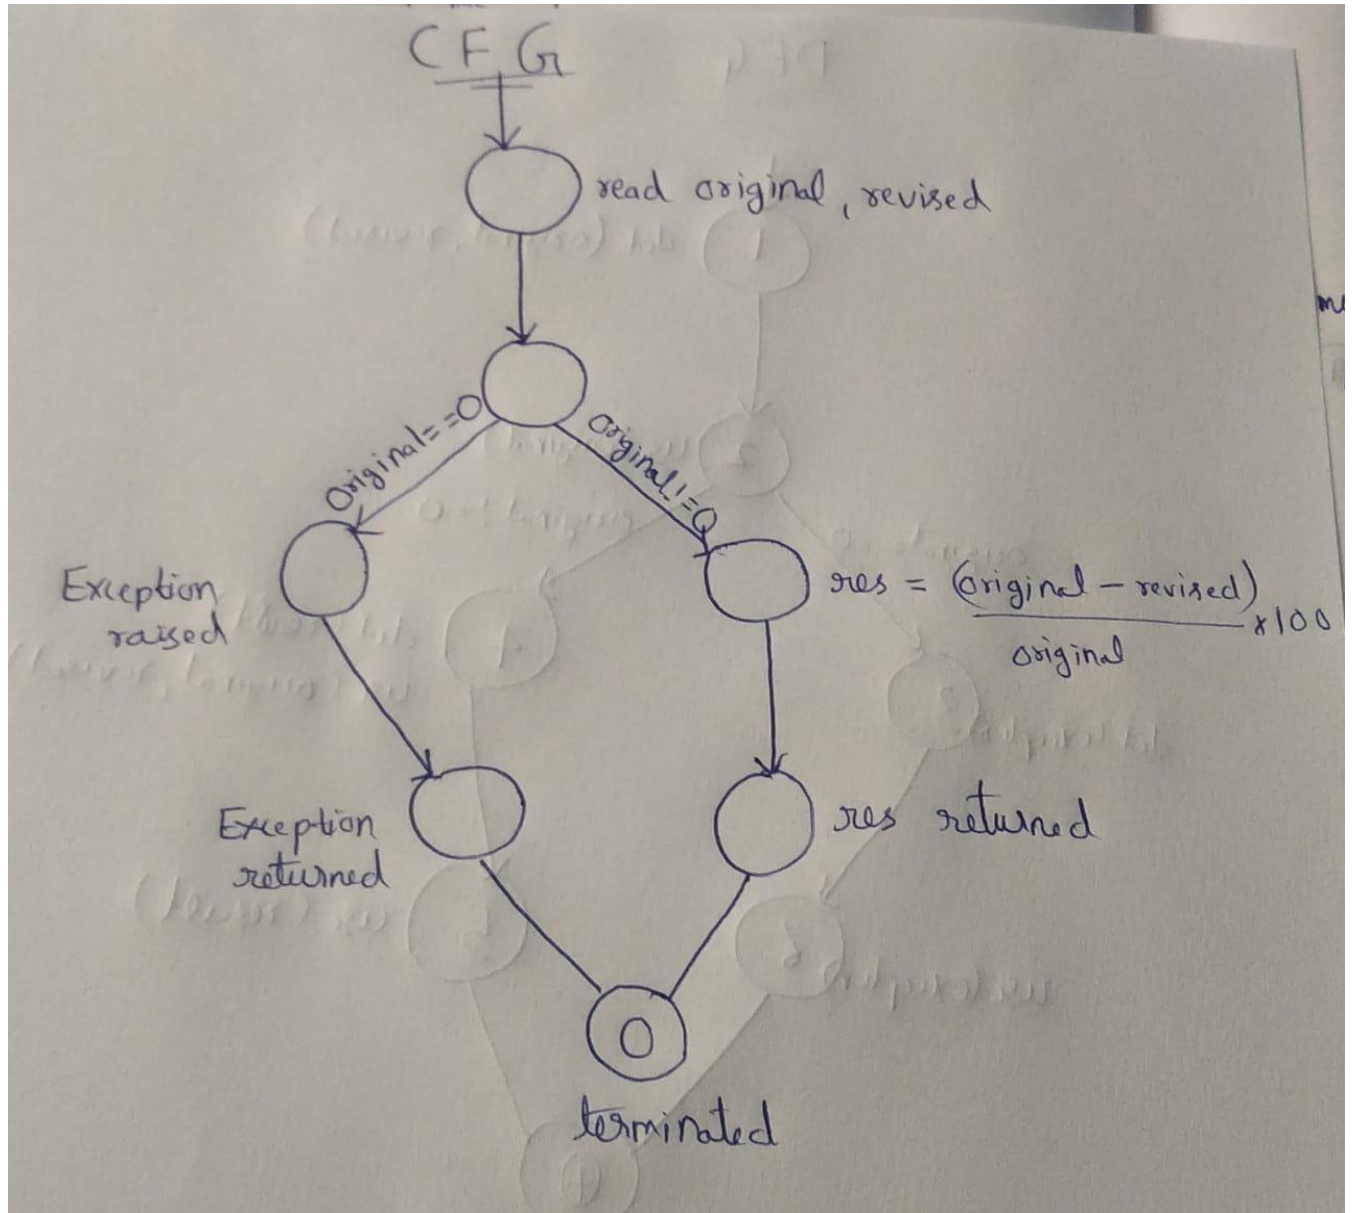 CFG
read original, revised
Original==0
Original!=0
Exception
raised
res = (original - revised)
*100
original
Exception
returned
res returned
terminated